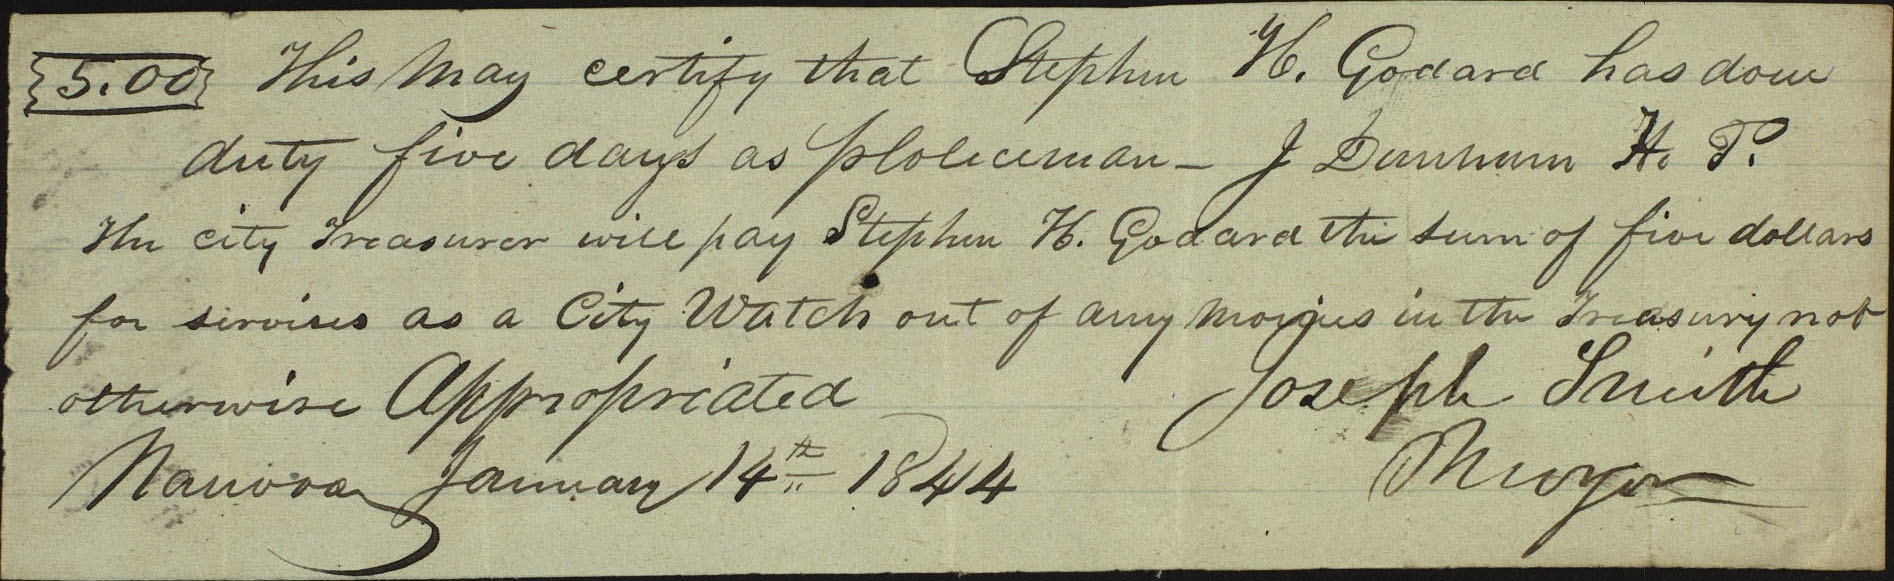 {5.00} This May certify that Stephen H. Godard has done
duty five days as ploliceman — J Dunham H. P.
The city Treasurer will pay Stephen H. Godard the sum of five dollars
for servises as a City Watch out of any monies in the Treasury not
otherwise Appropriated Joseph Smith
Nauvoo January 14th 1844 Mayor